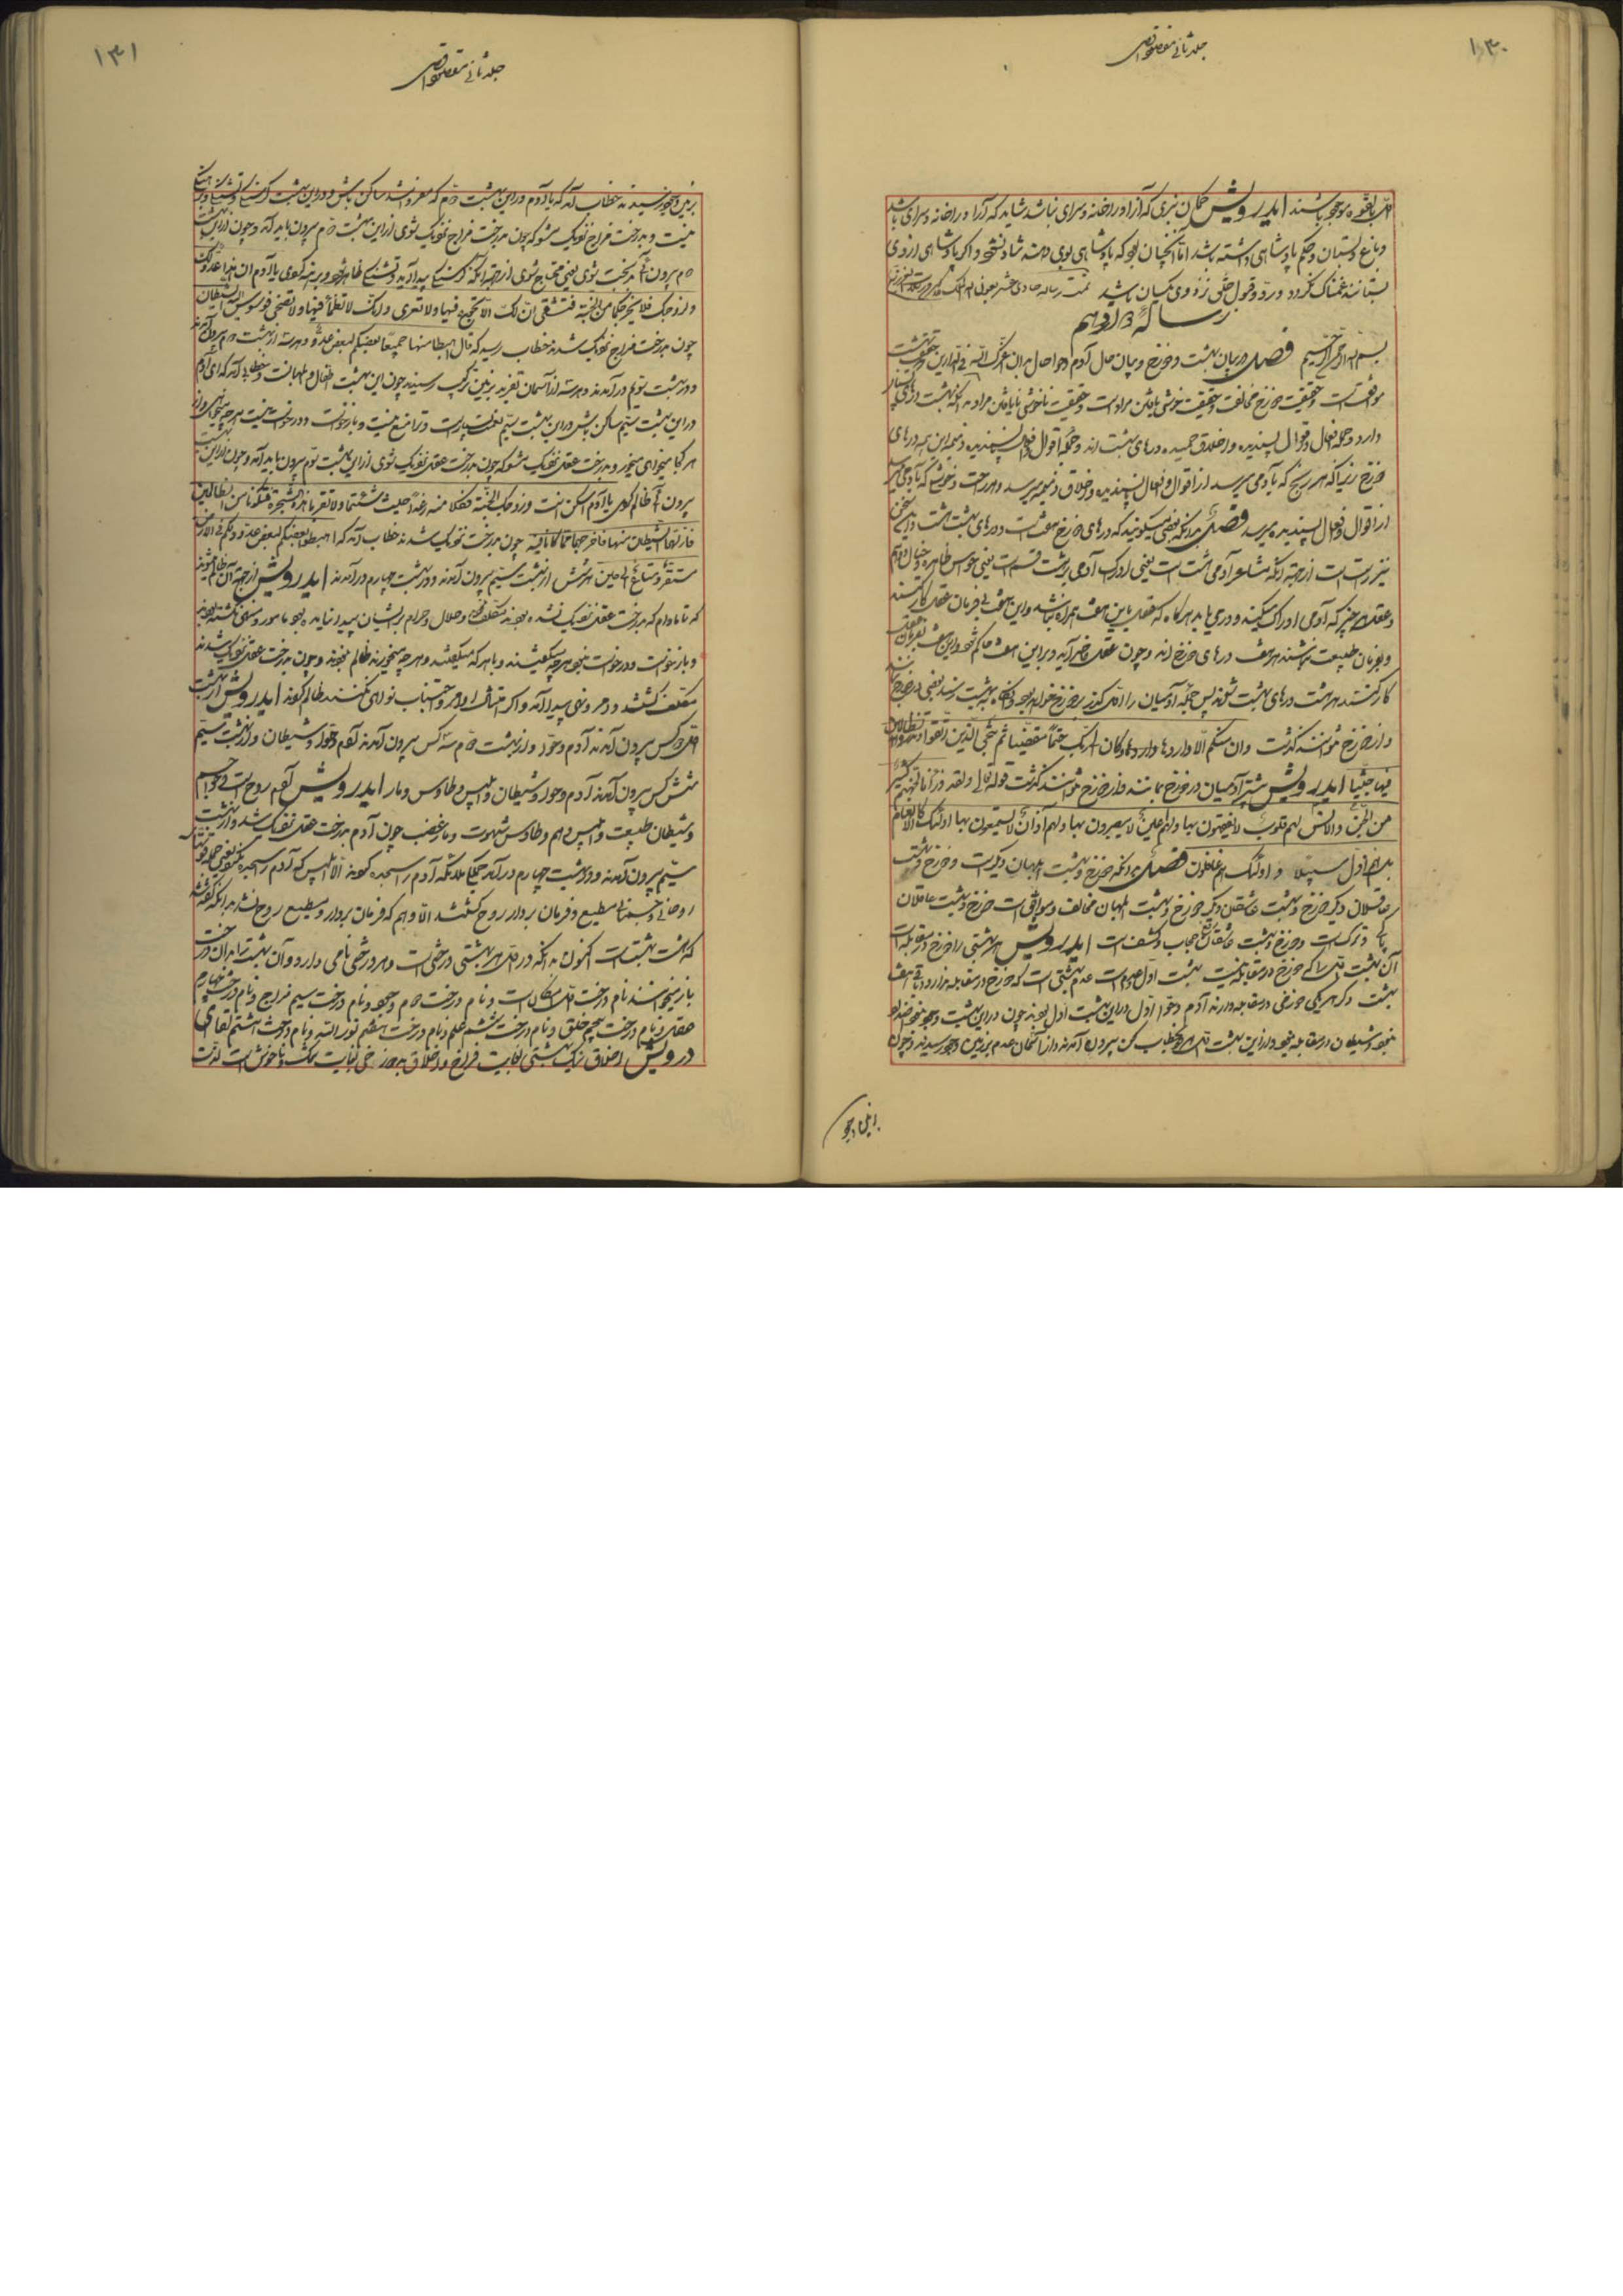 ۱۳۰
جلد ثانی مقصد اقصی
باشند ایدرویش گمان نبری که آزاد را خانه و سرای نباشد شاید که آزاد را خانه و سرای باشد
و باغ و بستان و حکم پادشاهی داشته باشد اما آنچنان بود که پادشاهی بوی دهند شاد نشود و اگر پادشاهی از وی
بستانند غمناک نگردد و رد و قبول خلق نزد وی یکسان باشد تمت رساله حادی عشر بعون الملک
رساله دوازدهم
بسم الله الرحمن الرحیم فصل در بیان بهشت و دوزخ و بیان حال آدم و حوا بدان اعزک الله فی الدارین که حقیقت بهشت
موافقت است و حقیقت دوزخ مخالفت و حقیقت خوشی یافتن مراد است و حقیقت ناخوشی نایافتن مراد بدانکه بهشت درهای بسیار
دارد و جمله افعال و اقوال پسندیده و اخلاق حمیده درهای بهشت اند و جمله اقوال و افعال ناپسندیده و ذمیمه این درهای
دوزخ زیرا که هر رنج که بآدمی میرسد از اقوال و افعال ناپسندیده و اخلاق ذمیمه میرسد و هر راحت و خوشی که بآدمی میرسد
از اقوال و افعال پسندیده میرسد فصل بدانکه بعضی میگویند که درهای دوزخ هفت است و درهای بهشت هشت و این سخن
نیز راست است از جهة آنکه مشاعر آدمی هشت است یعنی ادراک آدمی بر هشت قسم است یعنی حواس ظاهره و خیال و وهم
و عقل هر چیز که آدمی ادراک میکند و در می یابد هرگاه که عقل با این هفت همراه نباشد و این هفت بی فرمان عقل کار کنند
و بفرمان طبیعت باشند هر هفت درهای دوزخ اند و چون عقل حاضر آید و بر این هفت حاکم شود و این هفت بفرمان عقل
کار کنند هر هشت درهای بهشت شوند پس جمله آدمیان را اول گذر بر دوزخ خواهد بود و آنگاه به بهشت رسند بعضی در دوزخ بمانند
و از دوزخ نتوانند گذشت و ان منکم الا واردها و کان علی ربک حتما مقضیا ثم ننجی الذین اتقوا و نذر الظالمین
فیها جثیا ایدرویش بیشتر آدمیان در دوزخ بمانند و از دوزخ نتوانند گذشت قوله تعالی و لقد ذرانا لجهنم کثیرا
من الجن و الانس لهم قلوب لا یفقهون بها و لهم اعین لا یبصرون بها و لهم آذان لا یسمعون بها اولئک کالانعام
بل هم اضل سبیلا و اولئک هم الغافلون فصل بدانکه دوزخ و بهشت ابلهان دیگر است و دوزخ و بهشت
عاقلان دیگر دوزخ و بهشت عاشقان دیگر دوزخ و بهشت ابلهان مخالفت و موافقت است دوزخ و بهشت عاقلان
بایست و ترک است و دوزخ و بهشت عاشقان حجاب و کشف است ایدرویش هر بهشتی را دوزخ در مقابله است
آن بهشت اول را که دوزخ در مقابله نیست بهشت اول عدم است عدم بهشتی است که دوزخ در مقابله ندارد و باقی هفت
بهشت دیگر هر یکی دوزخی در مقابله دارند آدم و حوا اول در این بهشت اول بودند چون در این بهشت وجود نبود ضد او
نبود و شیطان در مقابله نبود از این بهشت اول بخطاب کن بیرون آمدند و از آسمان عدم بزمین وجود رسیدند و چون
بزمین وجود
۱۳۱
جلد ثانی مقصد اقصی
بزمین وجود رسیدند خطاب آمد که یا آدم در این بهشت دوم که مفردات باشد ساکن باش و در این بهشت گرسنگی و تشنگی و برهنگی
نیست و بدرخت مزاج نزدیک مشو که چون بدرخت مزاج نزدیک شوی از این بهشت دوم بیرون باید آمد و چون از این بهشت
دوم بیرون آئی بدبخت شوی یعنی محتاج شوی از جهة آنکه گرسنگی پیدا آید و تشنگی ظاهر شود و برهنه گردی یا آدم ان هذا عدو لک
و لزوجک فلا یخرجنکما من الجنة فتشقی ان لک الا تجوع فیها و لا تعری و انک لا تظمأ فیها و لا تضحی فوسوس الیه الشیطان
چون بدرخت مزاج نزدیک شدند خطاب رسید که قال اهبطا منها جمیعا بعضکم لبعض عدو و هر سه از بهشت دوم بیرون آمدند
و در بهشت سوم در آمدند و هر سه از آسمان تفرید بزمین ترکیب رسیدند چون این بهشت اطفال و ابلهان است خطاب آمد که ای آدم
در این بهشت سیم ساکن باش در این بهشت سیم نعمت بسیار است و ترا منع نیست و بازخواست و درخواست نیست هر چه میخواهی و از
هر کجا میخواهی میخور و بدرخت عقل نزدیک مشو که چون بدرخت عقل نزدیک شوی از این بهشت سوم بیرون باید آمد و چون از این بهشت
بیرون آئی ظالم گردی یا آدم اسکن انت و زوجک الجنة فکلا منه رغدا حیث شئتما و لا تقربا هذه الشجرة فتکونا من الظالمین
فازلهما الشیطان عنها فاخرجهما مما کانا فیه چون بدرخت نزدیک شدند خطاب آمد که اهبطوا بعضکم لبعض عدو و لکم فی الارض
مستقر و متاع الی حین هر شش از بهشت سیم بیرون آمدند و در بهشت چهارم درآمدند ایدرویش از جهة آن ظالم شوند
که تا مادام که بدرخت عقل نزدیک نشده بودند مکلف و حلال و حرام بر ایشان پیدا نیامده بود مأمور و منهی نگشته بودند
و بازخواست و درخواست نبود هر چه میکفتند و با هر که میکفتند و هر چه میخورند ظالم نبودند و چون بدرخت عقل نزدیک شدند
مکلف گشتند و امر و نهی پیدا آمد و اگر امتثال اوامر و اجتناب نواهی نکنند ظالم گردند ایدرویش از بهشت
اول دو کس بیرون آمدند آدم و حوا و از بهشت دوم سه کس بیرون آمدند آدم و حوا و شیطان و از بهشت سیم
شش کس بیرون آمدند آدم و حوا و شیطان و ابلیس و طاوس و مار ایدرویش آدم روح است و حوا جسم
و شیطان طبیعت و ابلیس وهم و طاوس شهوت و مار غضب چون آدم بدرخت عقل نزدیک شد و از بهشت
سیم بیرون آمدند و در بهشت چهارم درآمد جمله ملائکه آدم را سجده کردند الا ابلیس که آدم را سجده نکرد یعنی جمله قوتهای
روحانی و جسمانی مطیع و فرمان بردار روح گشتند الا وهم که فرمان بردار و مطیع روح نشد بدانکه گفته شد
که هشت بهشت است اکنون بدانکه در اول هر بهشتی درختی است و هر درختی نامی دارد و آن بهشت را بدان درخت
باز میخوانند نام درخت اول امکان است و نام درخت دوم وجود و نام درخت سیم مزاج و نام درخت چهارم
عقل و نام درخت پنجم خلق و نام درخت ششم علم و نام درخت هفتم نور الله و نام درخت هشتم لقا ای
درویش اخلاق نیک بهشتی بغایت فراخ و اخلاق بد دوزخی بغایت تنگ و ناخوش است لذت